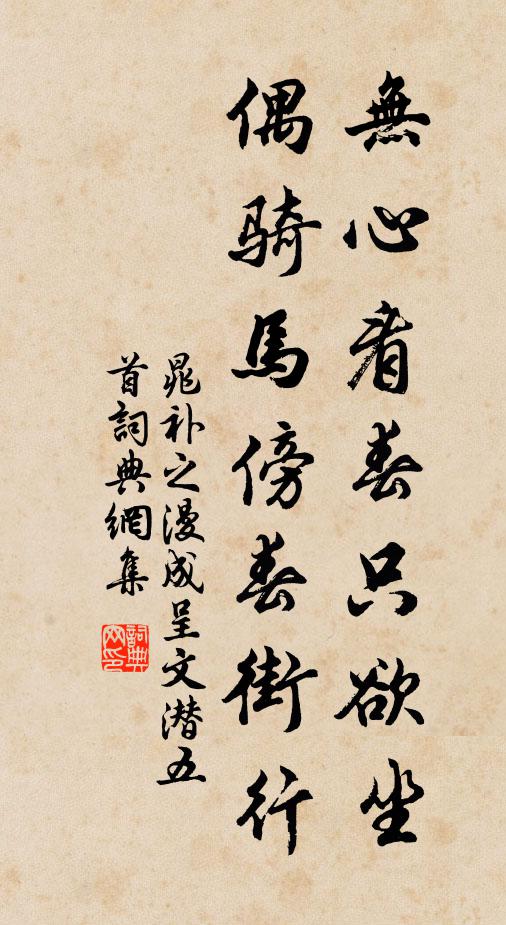 無心看春只欲坐
偶騎馬傍春街行
晁补之漫成呈文潜五
首詞典網集
詞典
网印